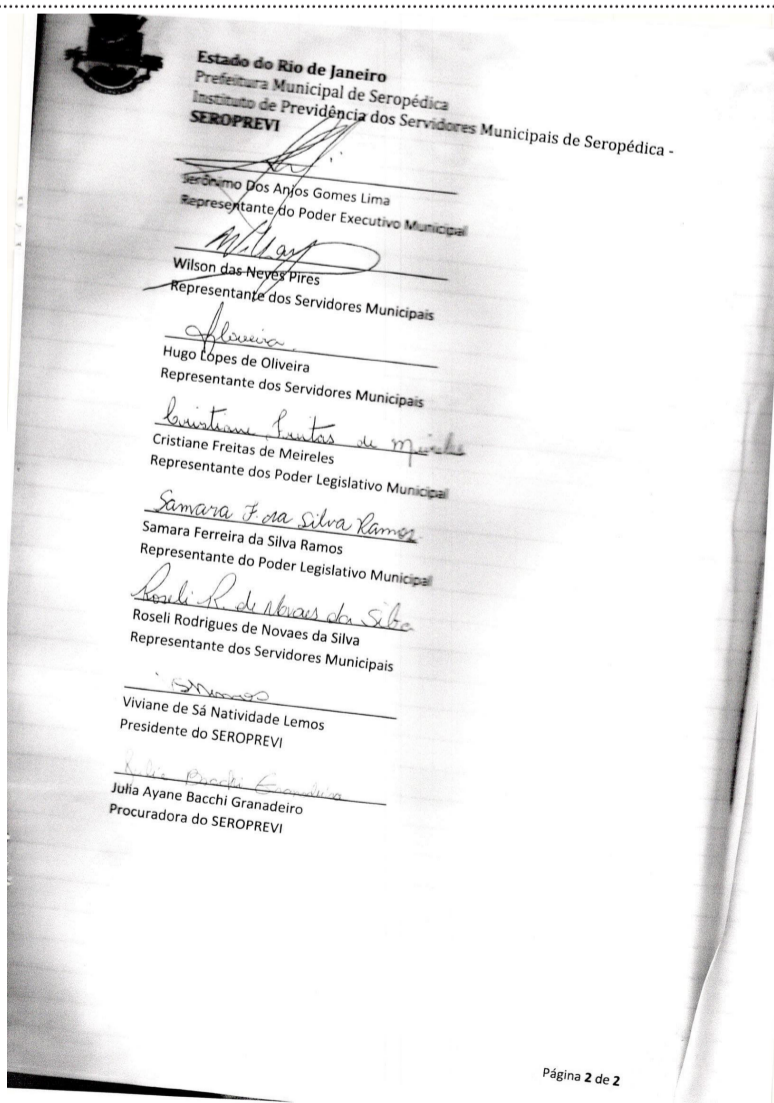 Estado do Rio de Janeiro
Prefeitura Municipal de Seropédica
Instituto de Previdência dos Servidores Municipais de Seropédica -
SEROPREVI
Serônimo Dos Anjos Gomes Lima
Representante do Poder Executivo Municipal
Wilson das Neves Pires
Representante dos Servidores Municipais
Oliveira
Hugo Lopes de Oliveira
Representante dos Servidores Municipais
Cristiane Freitas de Meireles
Cristiane Freitas de Meireles
Representante dos Poder Legislativo Municipal
Samara F. da Silva Ramos
Samara Ferreira da Silva Ramos
Representante do Poder Legislativo Municipal
Roseli R. de Novaes da Silva
Roseli Rodrigues de Novaes da Silva
Representante dos Servidores Municipais
Viviane de Sá Natividade Lemos
Presidente do SEROPREVI
Julia Bacchi Granadeiro
Julia Ayane Bacchi Granadeiro
Procuradora do SEROPREVI
Página 2 de 2